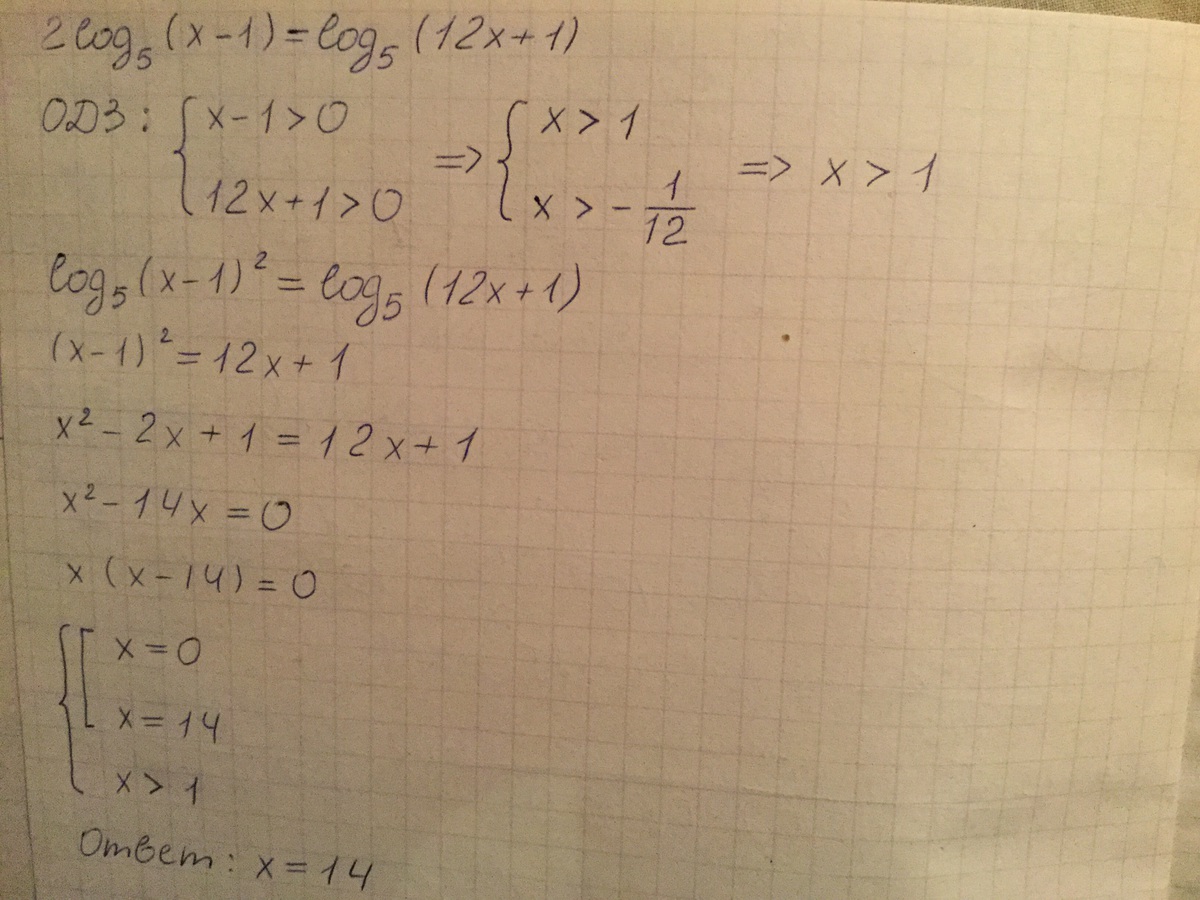 2log₅(x-1)=log₅(12x+1)
ОДЗ: { x-1>0 ; 12x+1>0 => { x>1 ; x>-1/12 => x>1
log₅(x-1)²=log₅(12x+1)
(x-1)²=12x+1
x²-2x+1=12x+1
x²-14x=0
x(x-14)=0
{ [ x=0
x=14
x>1
Ответ: x=14